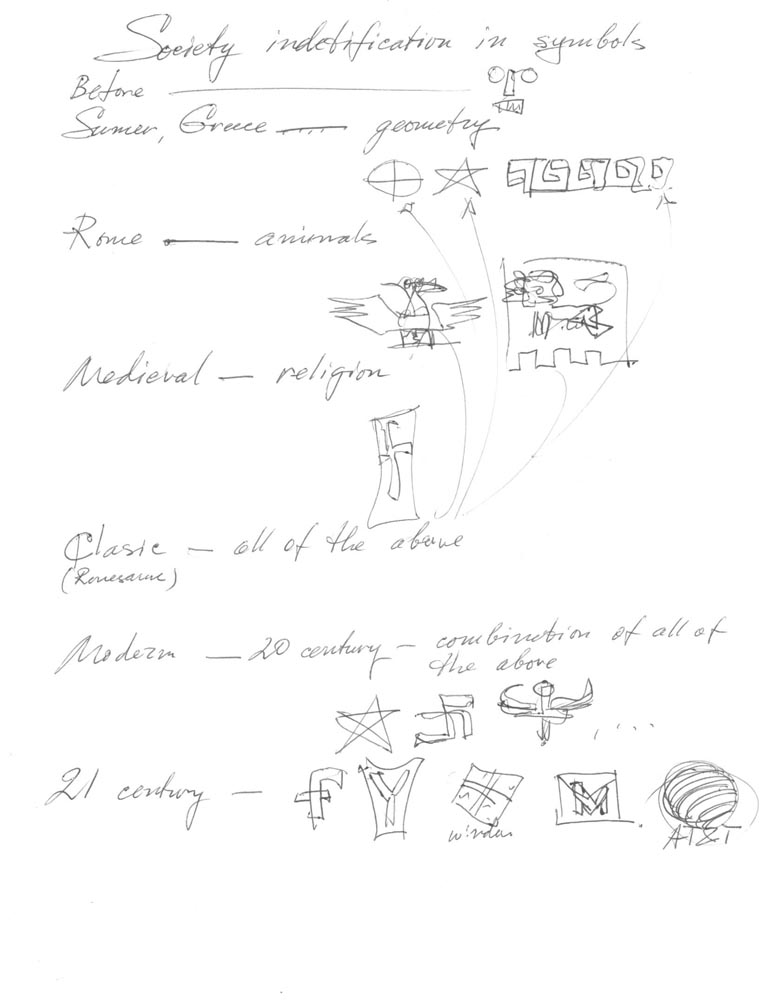 Society indetification in symbols
Before
Sumer, Grece —....— geometry
Rome — animals
Medieval — religion
Clasic — all of the above
(Renesanse)
Modern — 20 century — combination of all of
the above
21 century — f Y M
windows
AT&T